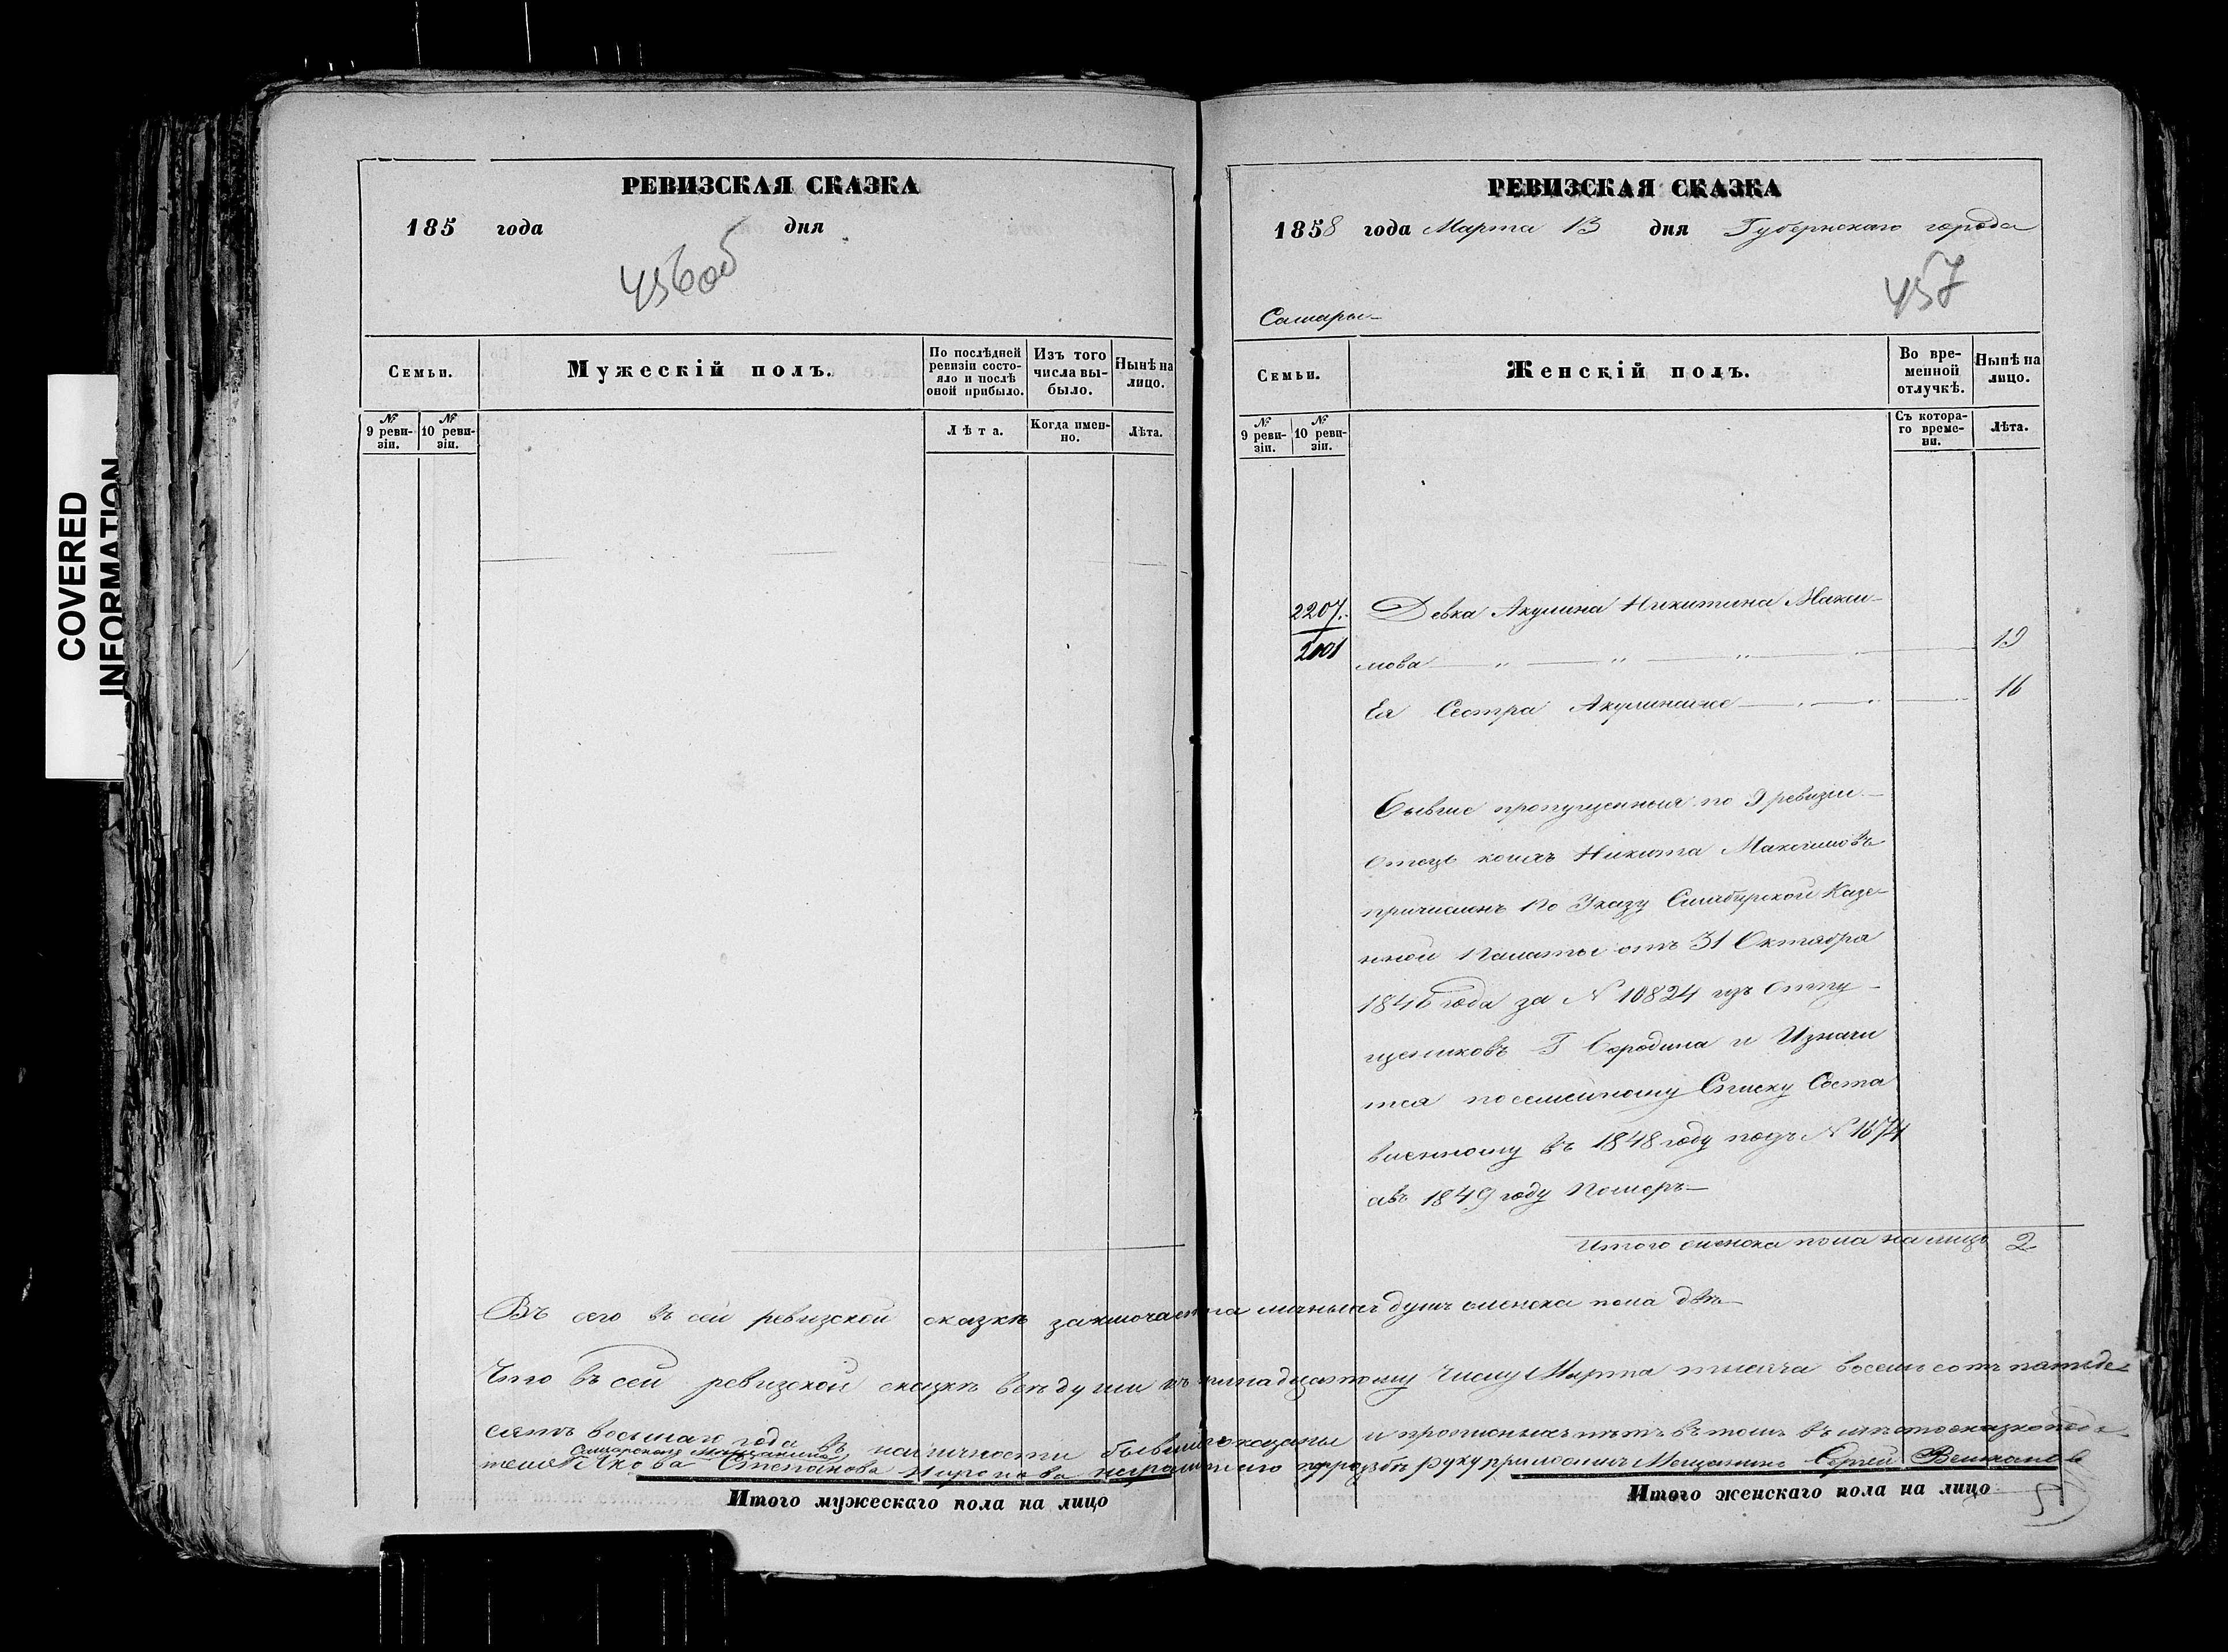 COVERED
INFORMATION
РЕВИЗСКАЯ СКАЗКА
185 года дня
456об
Семьи.
Мужескій полъ.
По послѣдней ревизіи состояло и послѣ оной прибыло.
Изъ того числа выбыло.
Нынѣ на лицо.
№ 9 ревизіи.
№ 10 ревизіи.
Лѣта.
Когда именно.
Лѣта.
РЕВИЗСКАЯ СКАЗКА
1858 года Марта 13 дня Губернскаго города
457
Самары
Семьи.
Женскій полъ.
Во временной отлучкѣ.
Нынѣ на лицо.
№ 9 ревизіи.
№ 10 ревизіи.
Съ котораго времени.
Лѣта.
2207. Девка Акулина Никитина Макси-
2001 мова 19
Ея Сестра 16
Бывшие пропущенныя по 9 ревизии
Отецъ коихъ Никита Максимовъ
причисленъ по Указу Симбирской Казе-
нной Палаты отъ 31 Октября
1846 года за № 10824 изъ Отпу-
щениковъ Г Бородина и Изначи
тся по семейному Списку Соста
вленному въ 1848 году подъ № 1674
а въ 1849 году Померъ
Итого женска пола на лицо 2
Въ сего въ сей ревизской сказкѣ заключается личныхъ душъ женска пола двѣ
Что въ сей ревизской сказкѣ всѣ души къ тринадцатому числу Марта тысяча восемь сотъ пятьде
сятъ восьмаго года въ наличности бывшія показаны и прописныхъ нѣтъ въ томъ вмѣсто сказкопода
Самарскаго Мещанина
теля Якова Степанова неграмотнаго по прозьбѣ руку приложилъ Мещанинъ Сергей
Итого мужескаго пола на лицо
Итого женскаго пола на лицо